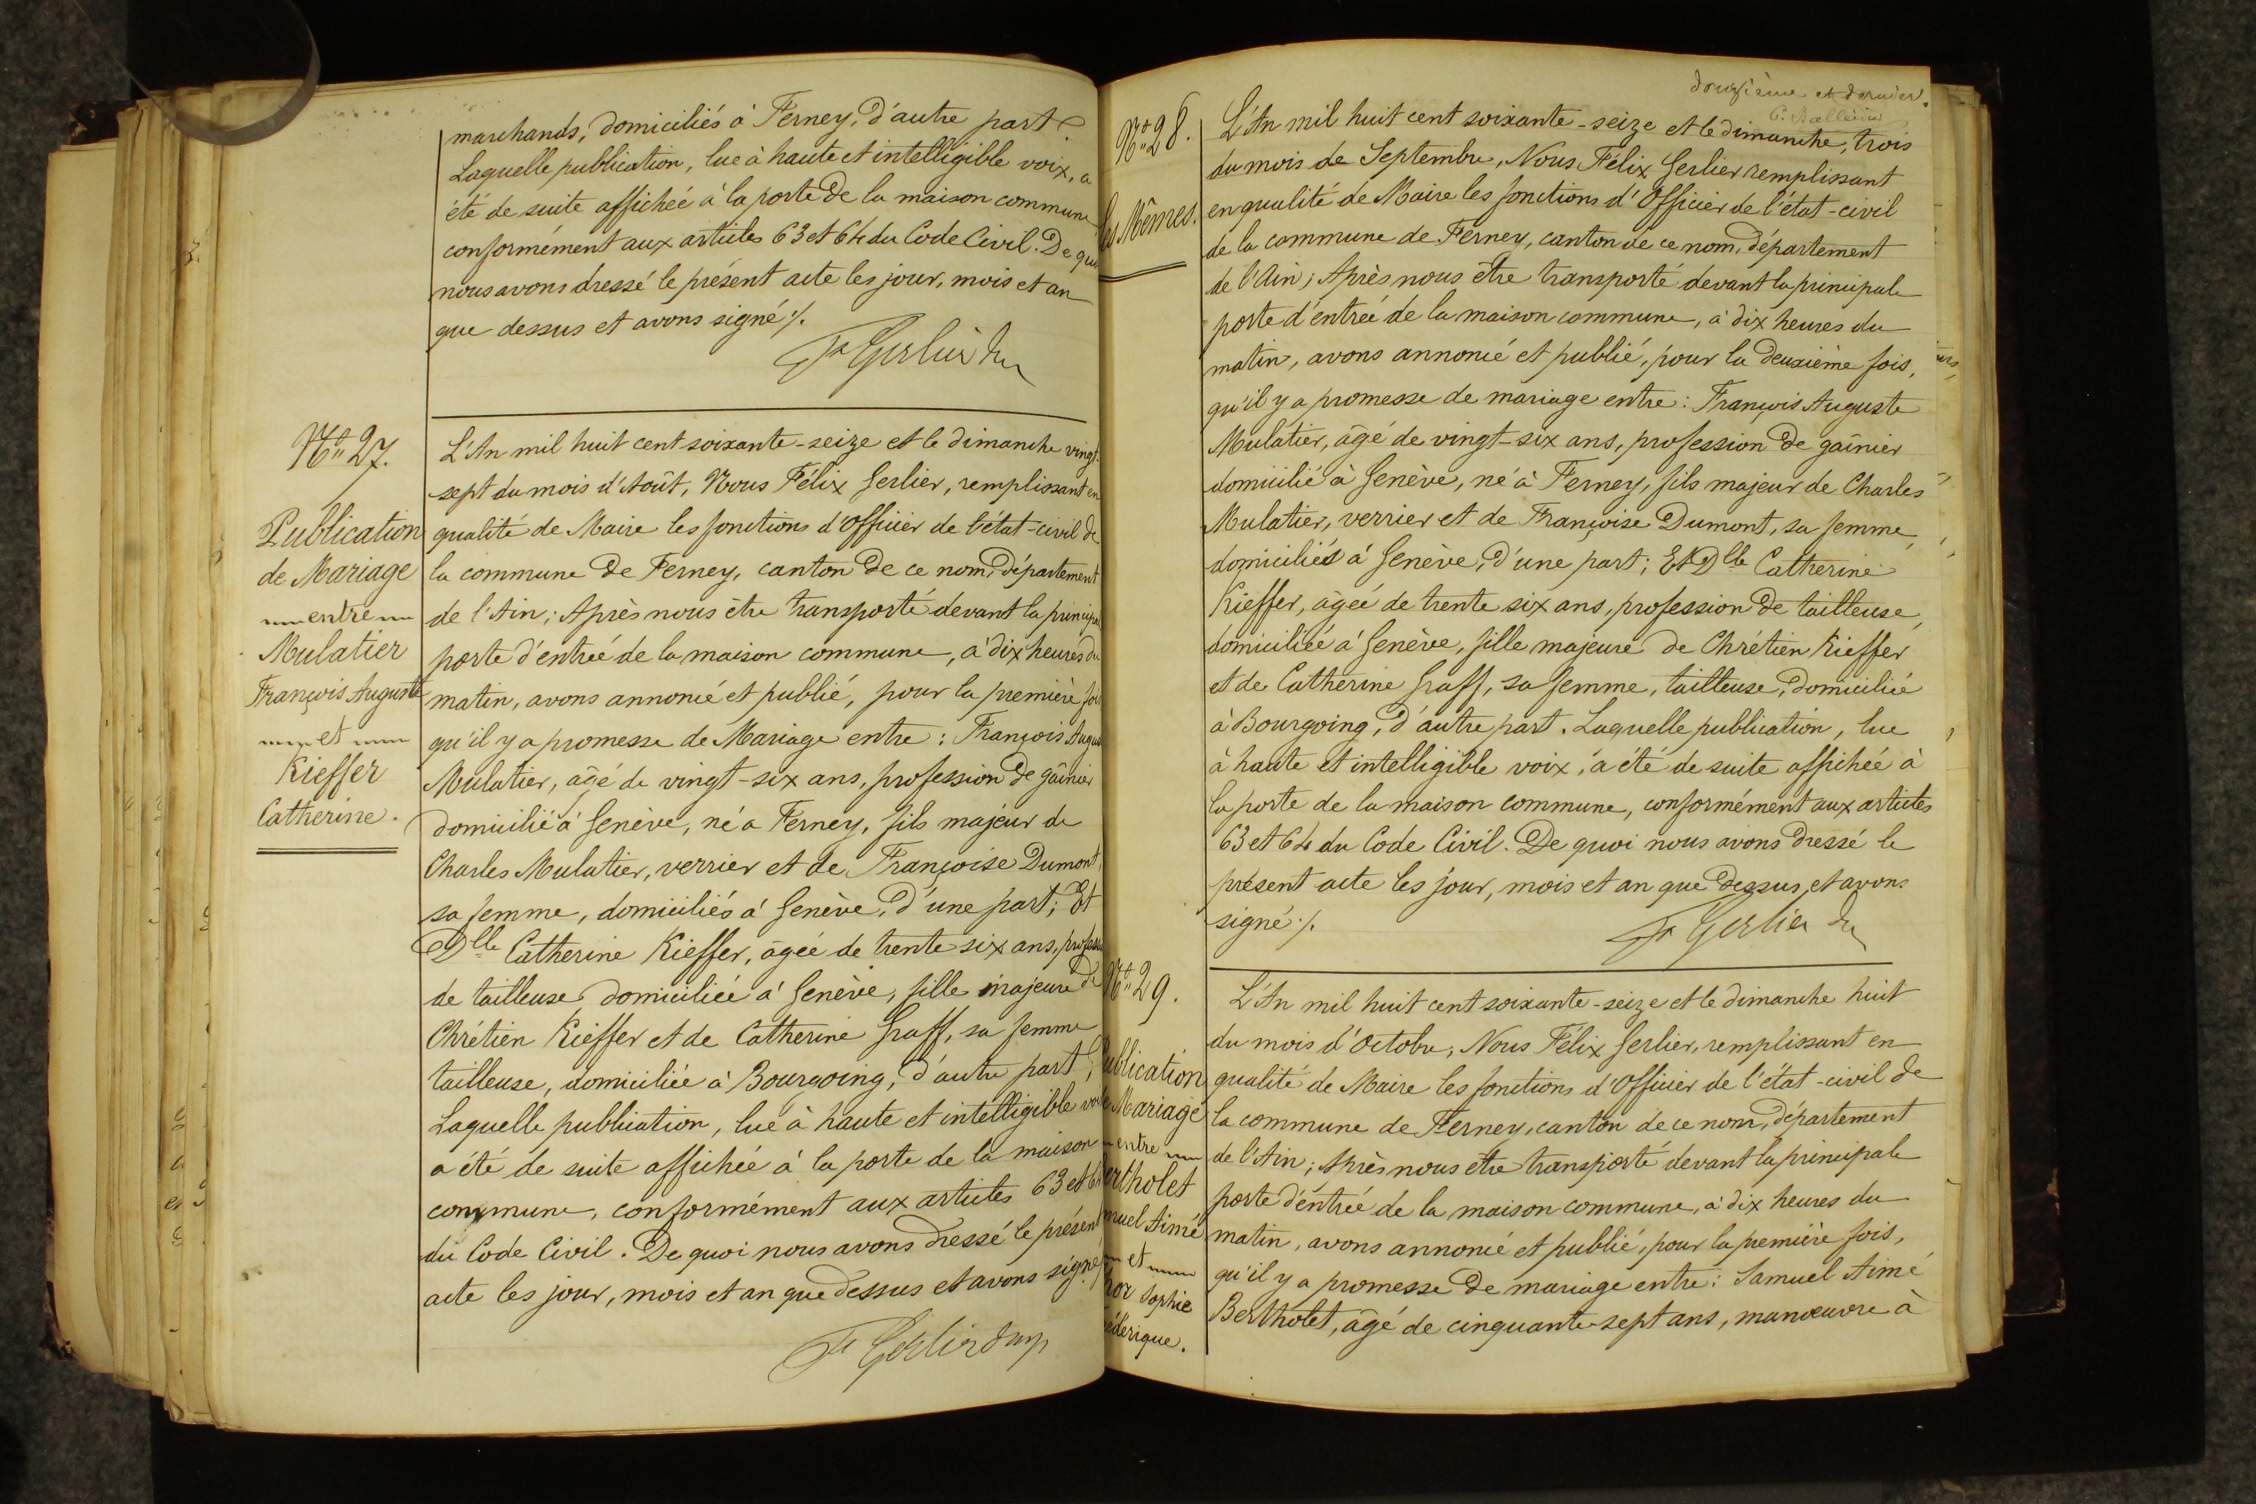 marchands, domiciliés à Ferney, d'autre part.
Laquelle publication, lue à haute et intelligible voix, a
été de suite affichée à la porte de la maison commune
conformément aux articles 63 et 64 du Code Civil. De quoi
nous avons dressé le présent acte les jour, mois et an
que dessus et avons signé ./.
Fx Gerlier
Nº 27.
Publication
de Mariage
entre
Mulatier
François Auguste
et
Kieffer
Catherine.
L'An mil huit cent soixante-seize et le dimanche vingt-
sept du mois d'Août, Nous Félix Gerlier, remplissant en
qualité de Maire les fonctions d'Officier de l'état-civil de
la commune de Ferney, canton de ce nom, département
de l'Ain; Après nous être transporté devant la princip
porte d'entrée de la maison commune, à dix heures du
matin, avons annoncé et publié, pour la première foi
qu'il y a promesse de Mariage entre : François Augu
Mulatier, âgé de vingt-six ans, profession de gaînier
domicilié à Genève, né à Ferney, fils majeur de
Charles Mulatier, verrier et de Françoise Dumont,
sa femme, domiciliés à Genève, d'une part; Et
Dlle Catherine Kieffer, âgée de trente six ans, profess
de tailleuse domiciliée à Genève, fille majeure de
Chrétien Kieffer et de Catherine Graff, sa femme
tailleuse, domiciliée à Bourgoing, d'autre part;
Laquelle publication, lue à haute et intelligible voi
a été de suite affichée à la porte de la maison
commune, conformément aux articles 63 et 64
du Code Civil. De quoi nous avons dressé le présent
acte les jour, mois et an que dessus et avons signé
Fx Gerlier
douzième et dernier.
Nº 28.
les Mêmes.
L'An mil huit cent soixante-seize et le dimanche, trois
du mois de Septembre, Nous Félix Gerlier remplissant
en qualité de Maire les fonctions d'Officier de l'état-civil
de la commune de Ferney, canton de ce nom, département
de l'Ain; Après nous être transporté devant la principale
porte d'entrée de la maison commune, à dix heures du
matin, avons annoncé et publié, pour la deuxième fois,
qu'il y a promesse de mariage entre : François Auguste
Mulatier, âgé de vingt-six ans, profession de gaînier
domicilié à Genève, né à Ferney, fils majeur de Charles
Mulatier, verrier et de Françoise Dumont, sa femme,
domiciliés à Genève, d'une part; Et Dlle Catherine
Kieffer, âgée de trente six ans, profession de tailleuse,
domiciliée à Genève, fille majeure de Chrétien Kieffer
et de Catherine Graff, sa femme, tailleuse, domiciliée
à Bourgoing, d'autre part. Laquelle publication, lue
à haute et intelligible voix, a été de suite affichée à
la porte de la maison commune, conformément aux articles
63 et 64 du Code Civil. De quoi nous avons dressé le
présent acte les jour, mois et an que dessus, et avons
signé ./.
Fx Gerlier
Nº 29.
ublication
Mariage
entre
ertholet
muel Aimé
et
hor Sophie
éderique.
L'An mil huit cent soixante-seize et le dimanche huit
du mois d'Octobre, Nous Félix Gerlier, remplissant en
qualité de Maire les fonctions d'Officier de l'état-civil de
la commune de Ferney, canton de ce nom, département
de l'Ain; Après nous être transporté devant la principale
porte d'entrée de la maison commune, à dix heures du
matin, avons annoncé et publié, pour la première fois,
qu'il y a promesse de mariage entre : Samuel Aimé
Bertholet, âgé de cinquante-sept ans, manœuvre à